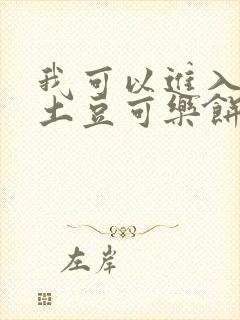 我可以進入
土豆可樂餅
左岸